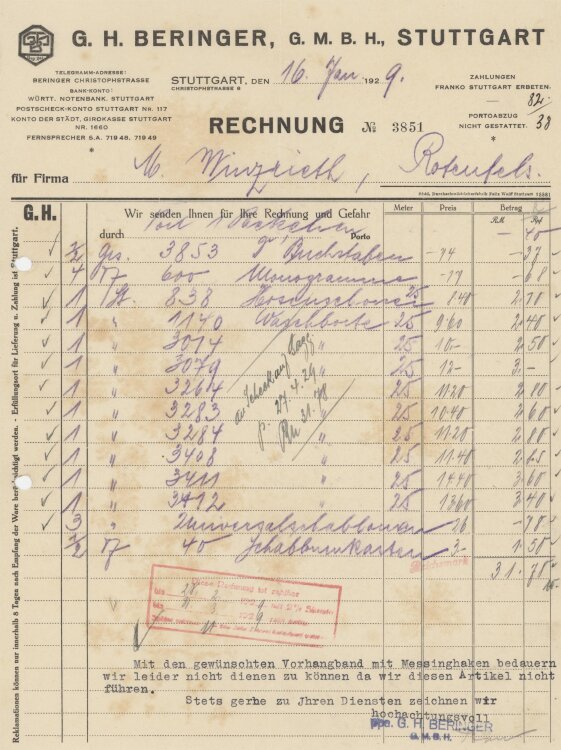 G. H. BERINGER, G. M. B. H., STUTTGART
TELEGRAMM-ADRESSE:
BERINGER CHRISTOPHSTRASSE
BANK-KONTO:
WÜRTT. NOTENBANK. STUTTGART
POSTSCHECK-KONTO STUTTGART Nr. 117
KONTO DER STÄDT. GIROKASSE STUTTGART
NR. 1660
FERNSPRECHER S.A. 719 48. 719 49
STUTTGART, DEN 16. Jan. 1929.
CHRISTOPHSTRASSE 8
ZAHLUNGEN
FRANKO STUTTGART ERBETEN.
PORTOABZUG
NICHT GESTATTET.
RECHNUNG № 3851
für Firma M. Winzrieth, Rotenfels.
G.H.
Wir senden Ihnen für Ihre Rechnung und Gefahr
durch Post 1 Päckchen Porto
Meter Preis Betrag
RM Rpf
- 40
1/2 Grs. 3853 Buchstaben - 74 - 37
4 Dz 600 Monogramme - 17 - 68
1 St. 838 Hosenschoner 25 840 2.10
1 " 1140 Waschborte 25 960 2.40
1 " 3014 " 25 10- 2.50
1 " 3079 " 25 12- 3.-
1 " 3264 " 25 1120 2.80
1 " 3283 " 25 1040 2.60
1 " 3284 " 25 1120 2.80
1 " 3408 " 25 1140 2.85
1 " 3411 " 25 1440 3.60
1 " 3412 " 25 1360 3.40
3 " Universalschablonen 26 - 78
1/2 Dz 40 Schabbinenkasten 3- 1.50
Reichsmark 31.78
27.4.29
31.78
Diese Rechnung ist zahlbar
Mit den gewünschten Vorhangband mit Messinghaken bedauern
wir leider nicht dienen zu können da wir diesen Artikel nicht
führen.
Stets gerhe zu Jhren Diensten zeichnen wir
hochachtungsvoll
ppa. G. H. BERINGER
G. M. B. H.
Reklamationen können nur innerhalb 8 Tagen nach Empfang der Ware berücksichtigt werden. Erfüllungsort für Lieferung u. Zahlung ist Stuttgart.